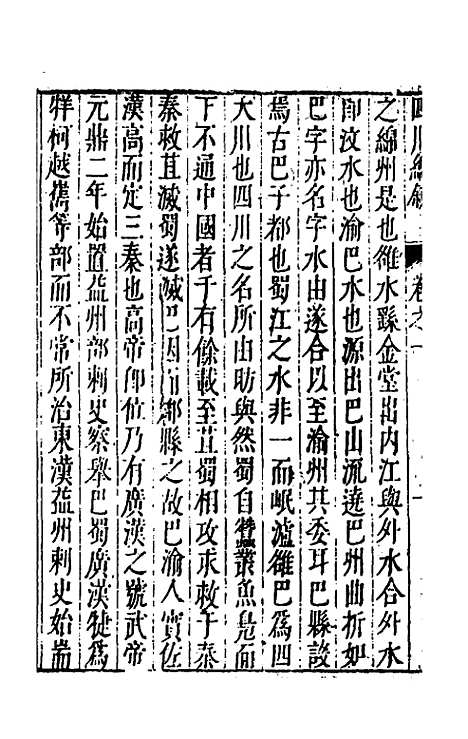 四川總錄 卷之一
之綿州是也雒水繇金堂出内江與外水合外水
卽汶水也渝巴水也源出巴山流遶巴州曲折如
巴字亦名字水由遂合以至渝州其委耳巴縣設
焉古巴子都也蜀江之水非一而岷瀘雒巴爲四
大川也四川之名所由昉與然蜀自蠶叢魚鳧而
下不通中國者千有餘載至苴蜀相攻求救于秦
秦救苴滅蜀遂滅巴因而郡縣之故巴渝人實佐
漢高而定三秦也高帝卽位乃有廣漢之號武帝
元鼎二年始置益州部刺史察舉巴蜀廣漢犍爲
牂柯越嶲等部而不常所治東漢益州刺史始耑